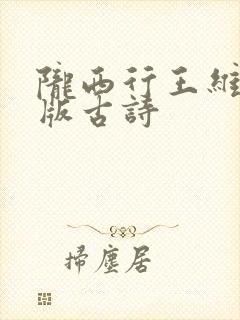 隴西行王維
版古詩
掃塵居